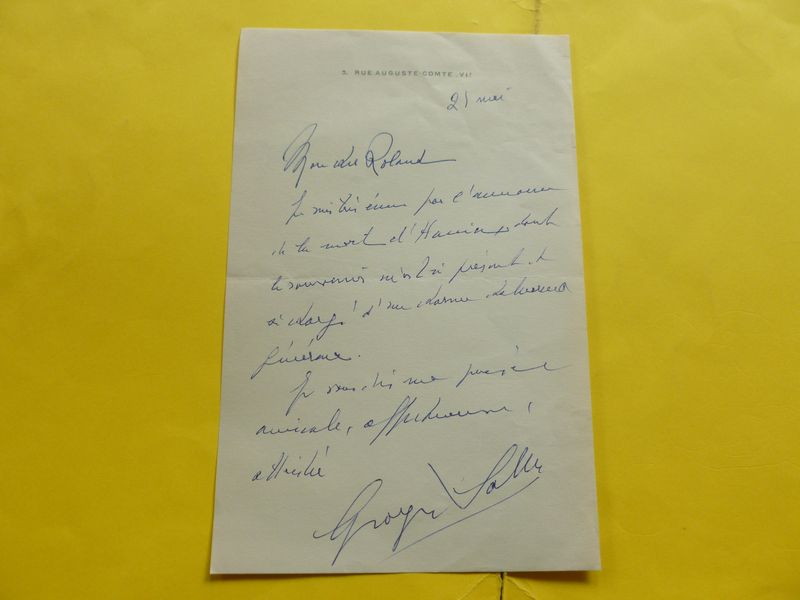 5, RUE AUGUSTE-COMTE. VIᵉ
21 mai
Mon cher Roland
Je suis très ému par l'annonce
de la mort d', dont
le souvenir m'est si présent et
si chargé d'une chaleureuse
généreuse.
Je vous dis ma pensée
amicale, affectueuse,
attristée
Georges Salles